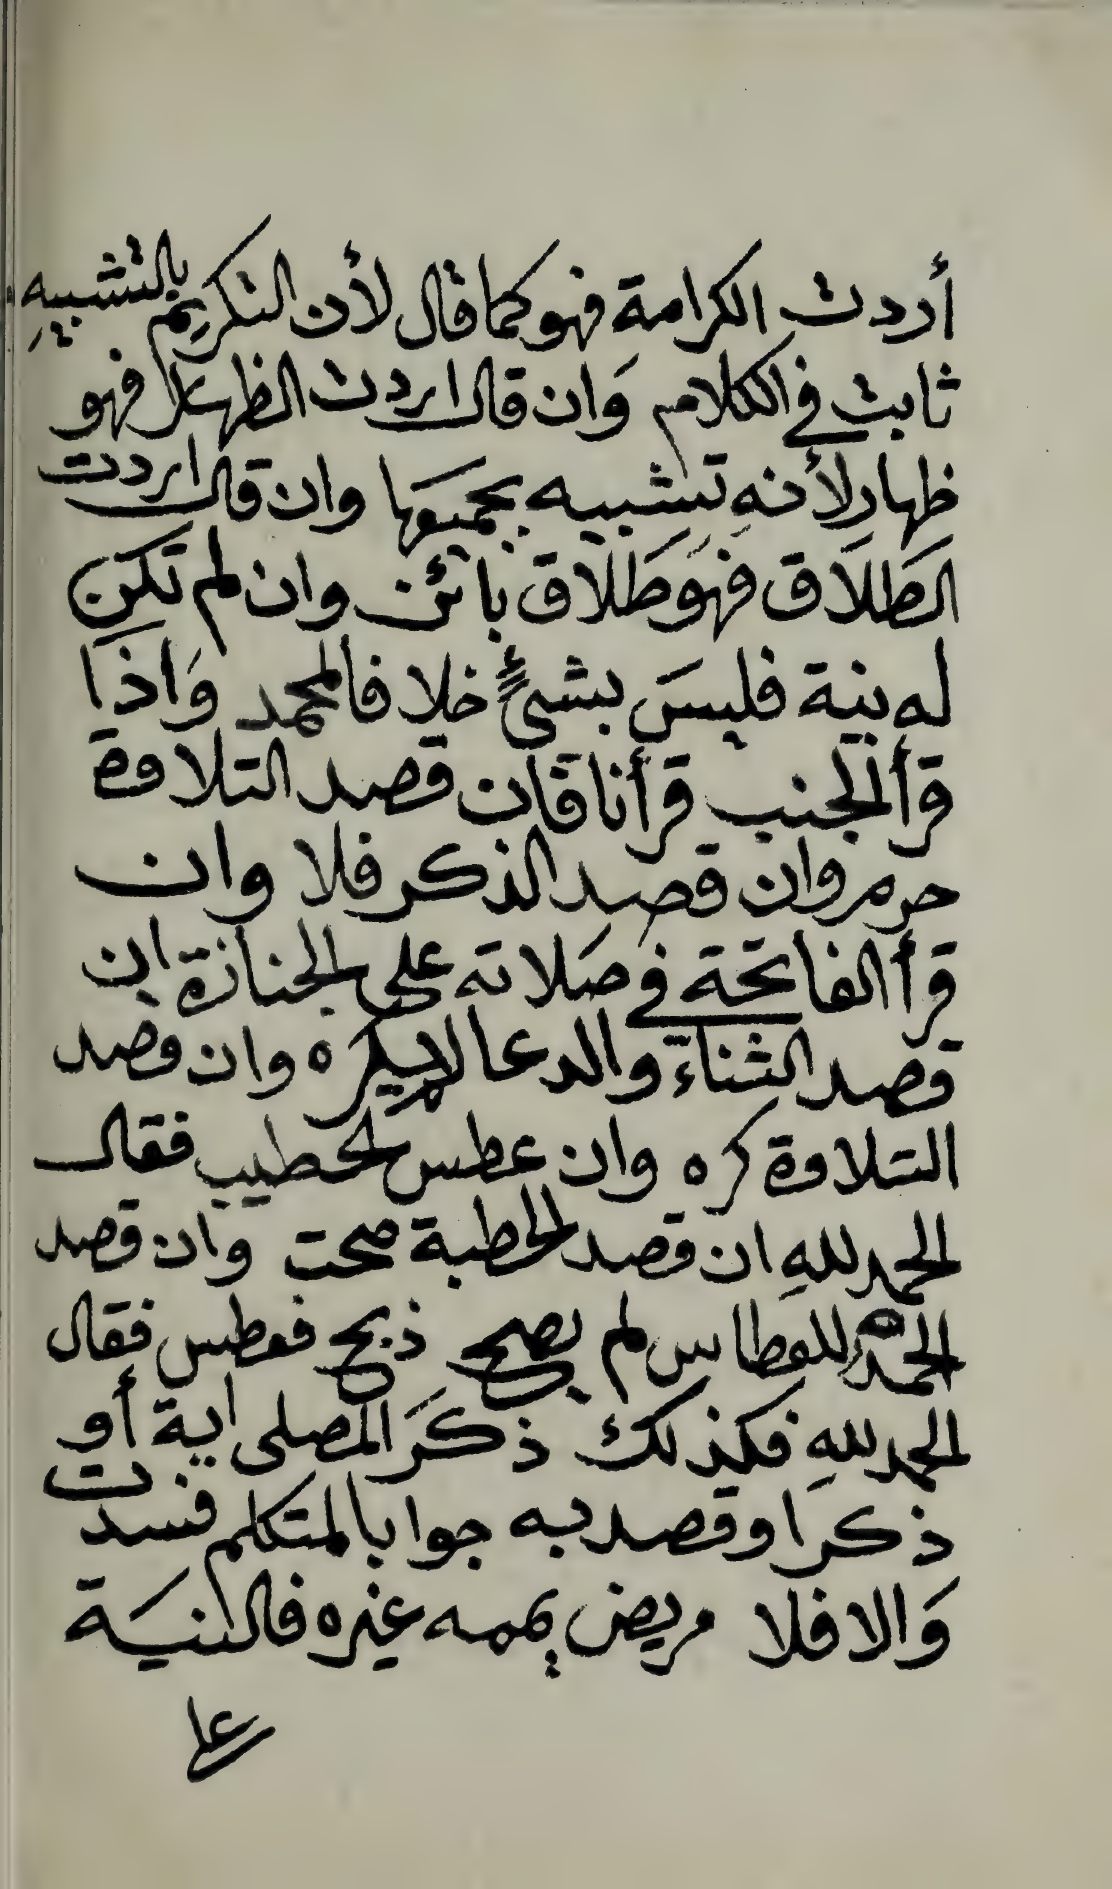 أردت الكرامة فهو كما قال لأن التكريم بالتشبيهِ
ثابت في الكلام وَان قال اردت الظهار فهو
ظهار لأنهِ تشبيه بجميعها وان قال اردت
الطَلَاق فهوَ طَلَاق بائن وان لم تكن
له نية فليسَ بشئٍ خلافا لمحمد وَاذَا
قرأ الجنب قرأنا فان قصد التلاوة
حرم وان قصد الذكر فلا وان
قرأ الفاتحة في صَلاته على الجنازة ان
قصد الثناء والدعا لا يكره وان قصد
التلاوة كره وان عطس الخطيب فقال
الحمد للهِ ان قصد الخطبة صحت وان قصد
الحمد للعطاس لم يصح ذبح فعطس فقال
الحمد للهِ فكذلك ذكَرَ المصلى اية أو
ذكرا وقصد به جوابا لمتكلم فسدت
وَالا فلا مريض يممه غيره فالنيَة
على